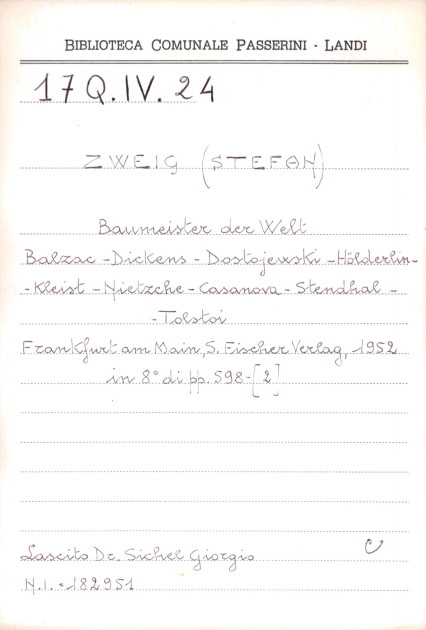 BIBLIOTECA COMUNALE PASSERINI - LANDI
17 Q. IV. 24
ZWEIG (STEFAN)
Baumeister der Welt
Balzac - Dickens - Dostojewski - Hölderlin -
- Kleist - Nietzche - Casanova - Stendhal -
- Tolstoi
Frankfurt am Main, S. Fischer Verlag, 1952
in 8° di pp. 598-[2]
Lascito Dr. Sichel Giorgio
C
N.I. 182951